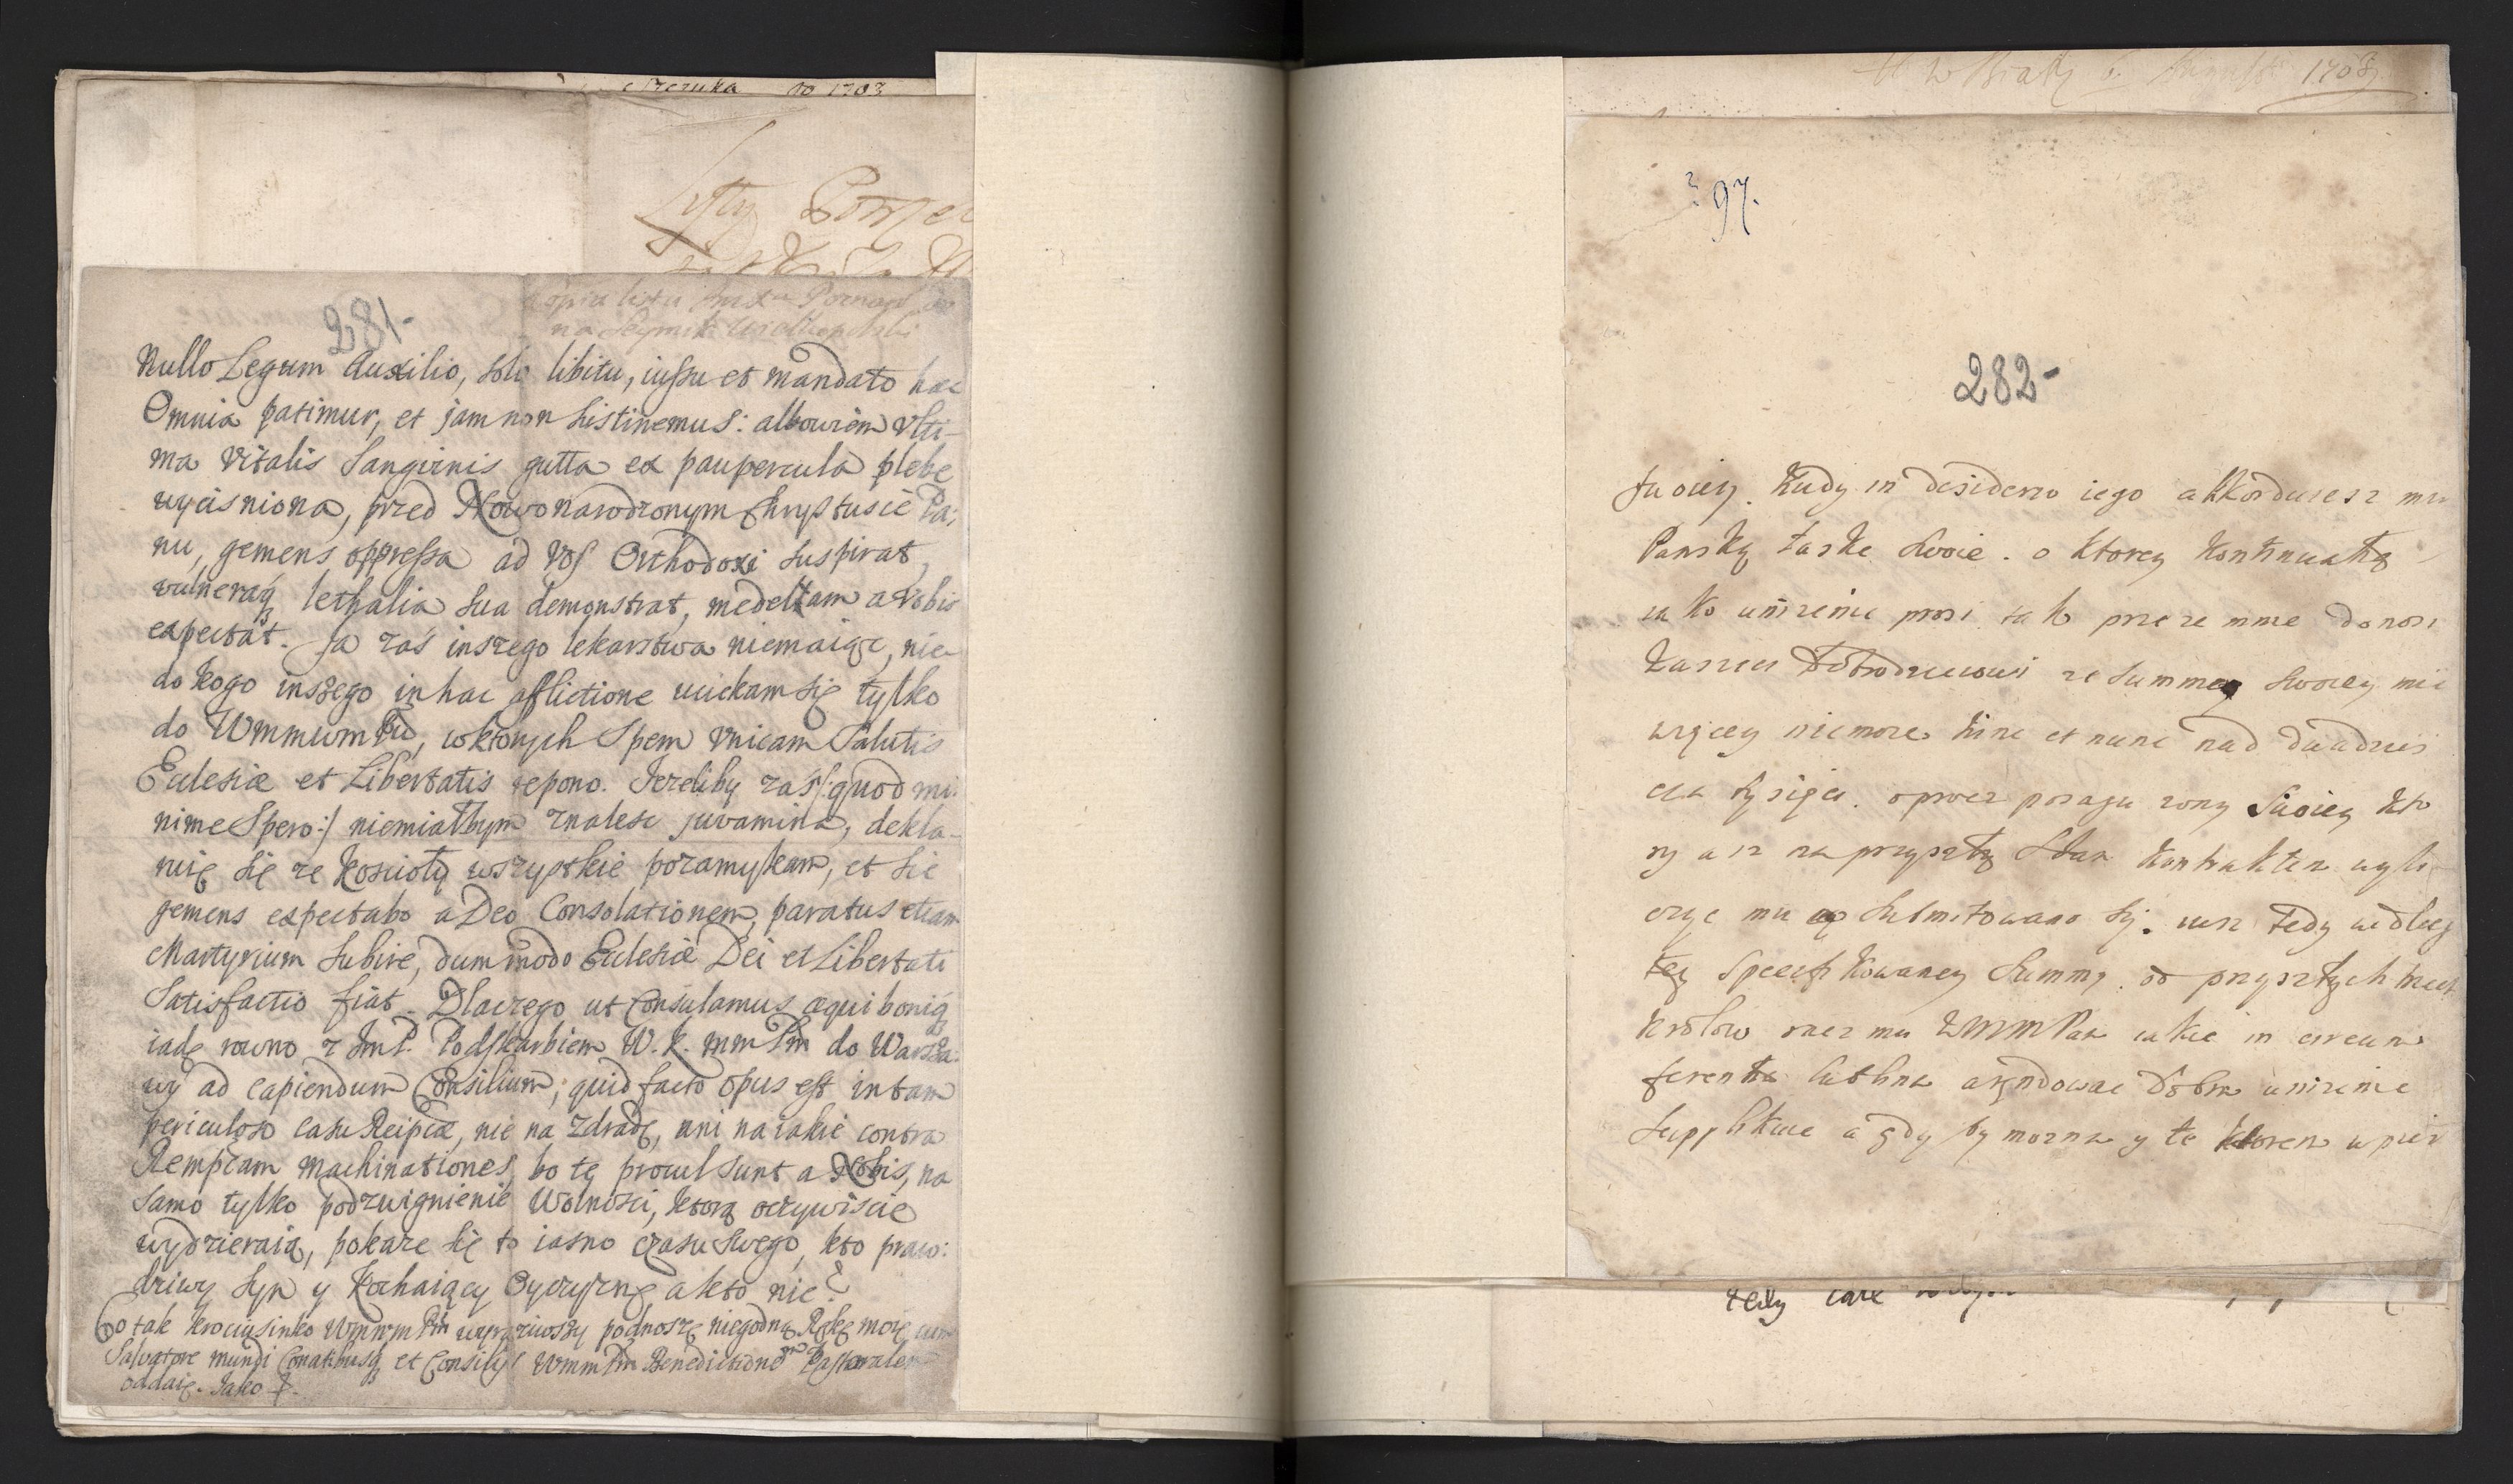 Szczuka 1703
Listy
281.
Copia listu Poznań
na Seymik Wielkopolski
Nullo Legum Auxilio, solo libitu, iussu et mandato haec
Omnia patimur, et jam non sistinemus: albowiem Vlti-
ma Vitalis Sanguinis gutta ex paupercula plebe
wycisniona, przed Nowonarodzonym Chrystusie Pa:
nu, gemens oppressa ad Vos Orthodoxi suspirat,
vulneraq lethalia sua demonstrat, medellam a Vobis
expectat. Ja zaś inszego lekarstwa niemaiąc, nie
do kogo inszego in hac aflictione uciekam się tylko
do Wmmwm Pw, w ktorych Spem Vnicam Salutis
Eclesiæ et Libertatis repono. Jezeliby zaś /: quod mi:
nime Spero :/ niemiałbym znalesc juvamina, dekla-
ruię się ze koscioły wszystkie pozamykam, et sic
gemens expectabo a Deo Consolationem, paratus etiam
Martyrium Subire, dummodo Eclesiæ Dei et Libertati
Satisfactio fiat. Dlaczego ut Consulamus æqui boniq
iadę rowno z JmP. Podskarbiem W. K. mm Pm do Warsza:
wy ad capiendum Consilium, quid facto opus est in tam
periculoso casu Reipcæ, nie na zdradę, ani na iakie contra
Rempcam machinationes, bo te procul sunt a Nobis, na
samo tylko podzwignienie Wolnosci, ktorą oczywiscie
wydzieraią, pokaze się to iasno czasu swego, kto praw:
dziwy Syn y Kochaiący Oyczyznę, a kto nie?
Co tak krociusinko Wmmm Pm wyraziwszy podnoszę niegodną Rękę moię cum
Salvatore mundi Conatibusq et Consilijs Wmm Pm Benedictionem Pastoralem
oddaię. Jako
w Biały 6. Augusti 1703
97.
282-
swoiey. Kudy in desiderio iego akkorduiesz mu
Panską łaskę swoie. o ktorey kontinuatią
iako unizenie prosi tak prze ze mnie donosi
Łasce Dobrodzieiowi ze summy swoiey nie
więcey niemoze hinc et nunc nad dwadzies
cia tysięcy. oprocz posagu zony Swoiey kto
ry asz na przyszły Stan kontrakten wyli
czyc mu submitowano się. iusz tedy wedlug
tey specifikowaney summy. od przyszłych trzech
Krolow racz mu WMMPan iakie in circum
ferentia Lublina arędowac Dobra unizenie
supplikuie a gdy by mozna y te ktoren wpier
tedy care